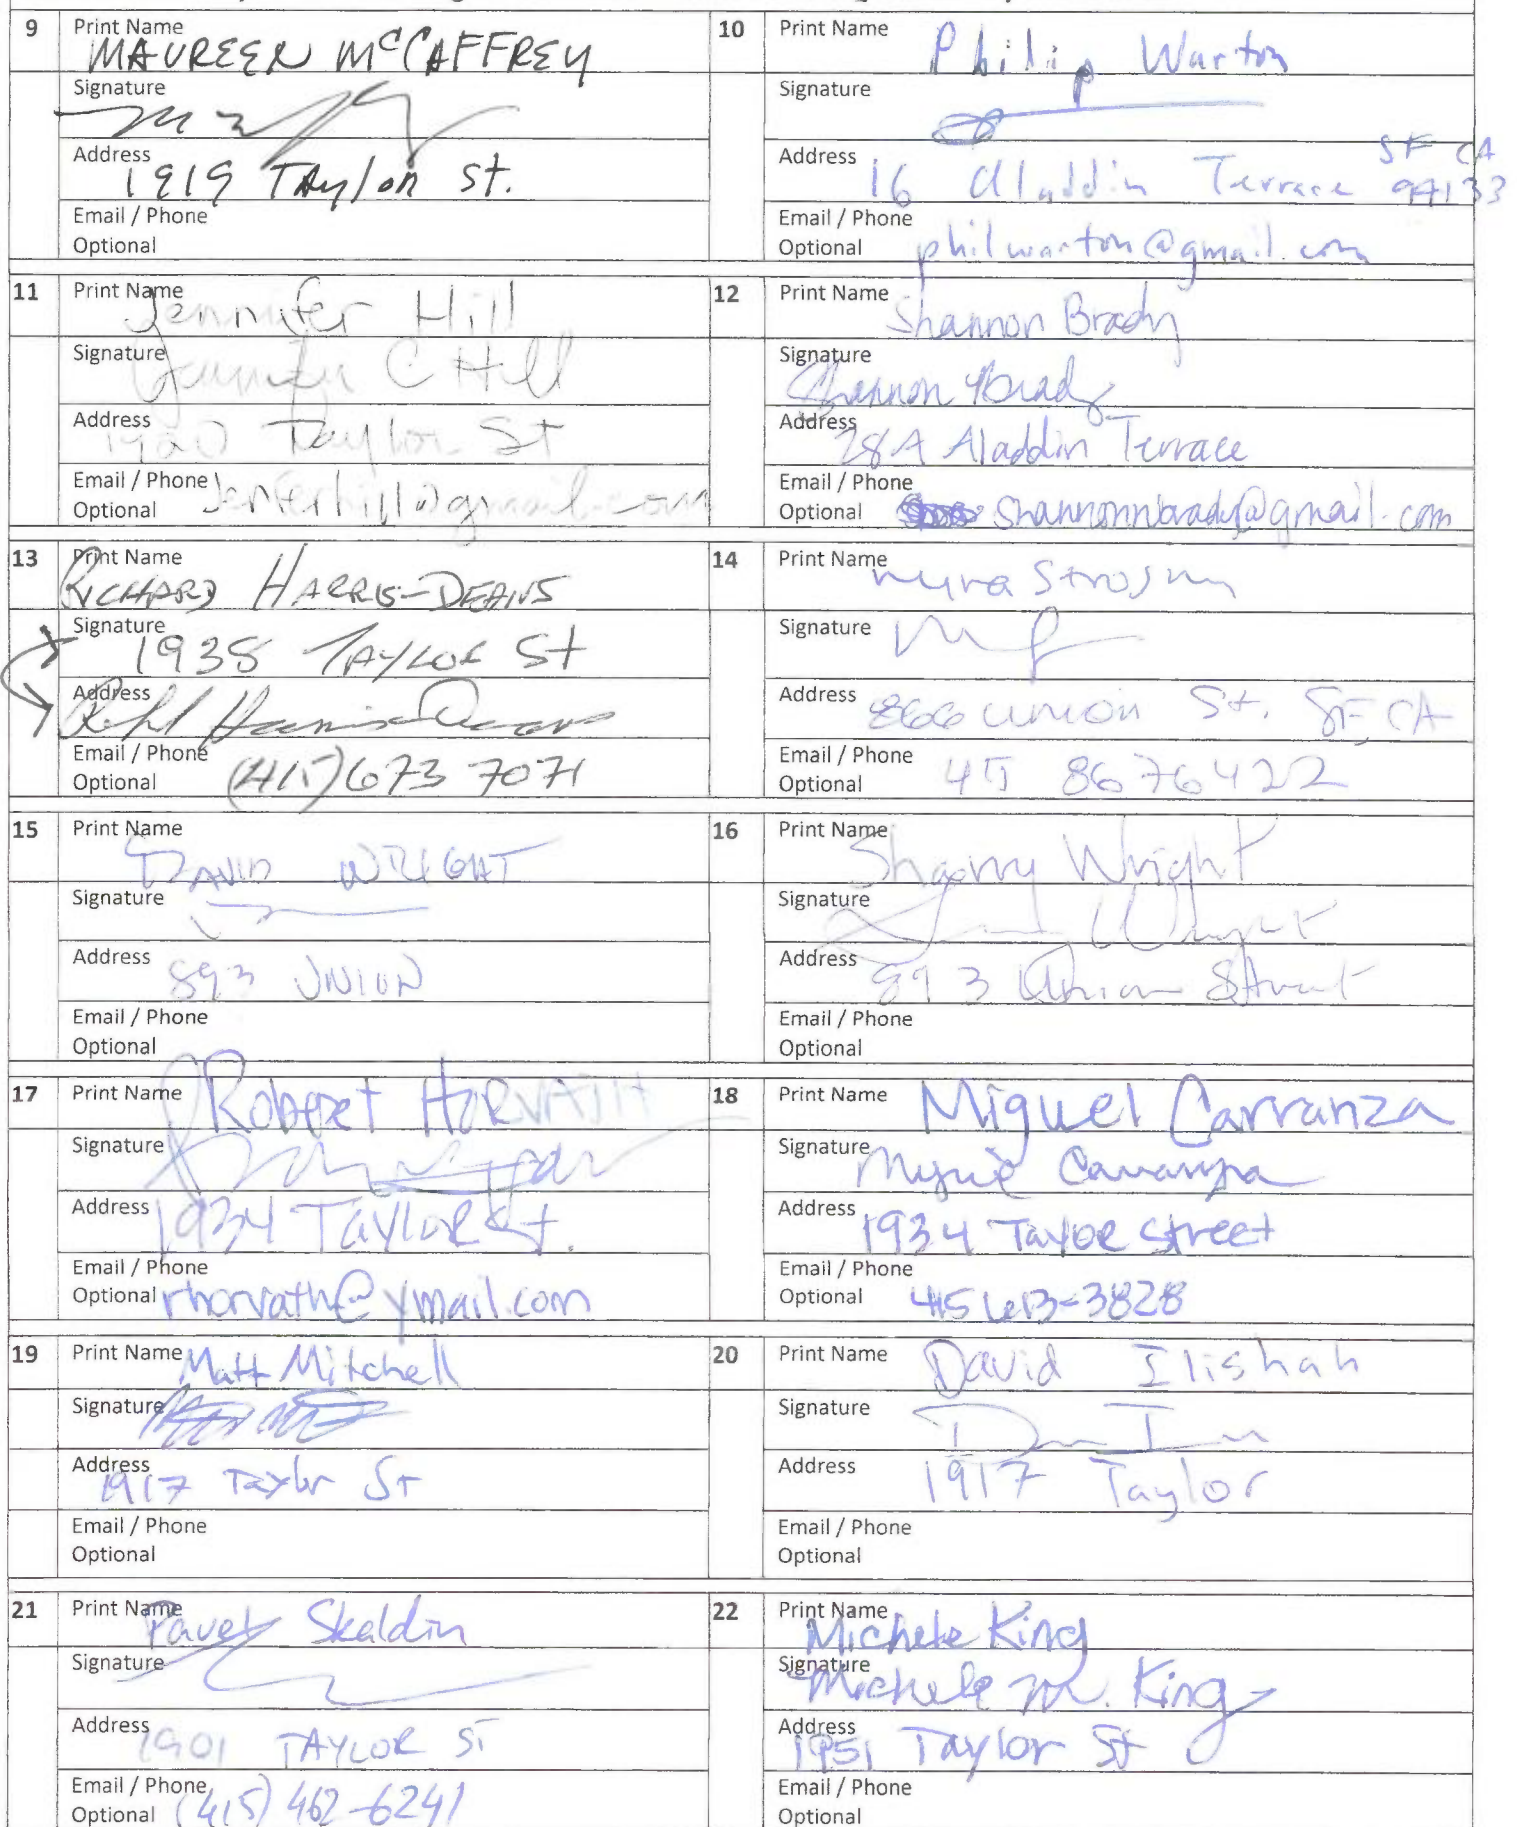 9
Print Name
MAUREEN McCAFFREY
Signature
Address
1919 TAylor St.
Email / Phone
Optional
10
Print Name
Philip Warton
Signature
Address
16 Aladdin Terrace SF CA
94133
Email / Phone
Optional
philwarton@gmail.com
11
Print Name
Jennifer Hill
Signature
Jennifer C Hill
Address
1920 Taylor St
Email / Phone
Optional
jenferhill@gmail.com
12
Print Name
Shannon Brady
Signature
Shannon Brady
Address
28A Aladdin Terrace
Email / Phone
Optional
shannonnbrady@gmail.com
13
Print Name
RICHARD HARRIS-DEANS
Signature
1935 TAYLOR St
Address
Email / Phone
Optional
(415) 673 7071
14
Print Name
Signature
Address
866 union St. SF, CA
Email / Phone
Optional
415 8676422
15
Print Name
DAVID WRIGHT
Signature
Address
893 UNION
Email / Phone
Optional
16
Print Name
Wright
Signature
Wright
Address
893 Union Street
Email / Phone
Optional
17
Print Name
Robert HORVATH
Signature
Address
1934 TAYLOR St.
Email / Phone
Optional
rhorvath@ymail.com
18
Print Name
Miguel Carranza
Signature
Miguel Carranza
Address
1934 Taylor street
Email / Phone
Optional
415 -3828
19
Print Name
Matt Mitchell
Signature
Address
1917 Taylor St
Email / Phone
Optional
20
Print Name
David Ilishah
Signature
Address
1917 Taylor
Email / Phone
Optional
21
Print Name
Pavel Skaldin
Signature
Address
1901 TAYLOR ST
Email / Phone
Optional
(415) 462-6241
22
Print Name
Michele King
Signature
Michele M. King
Address
1951 Taylor St
Email / Phone
Optional